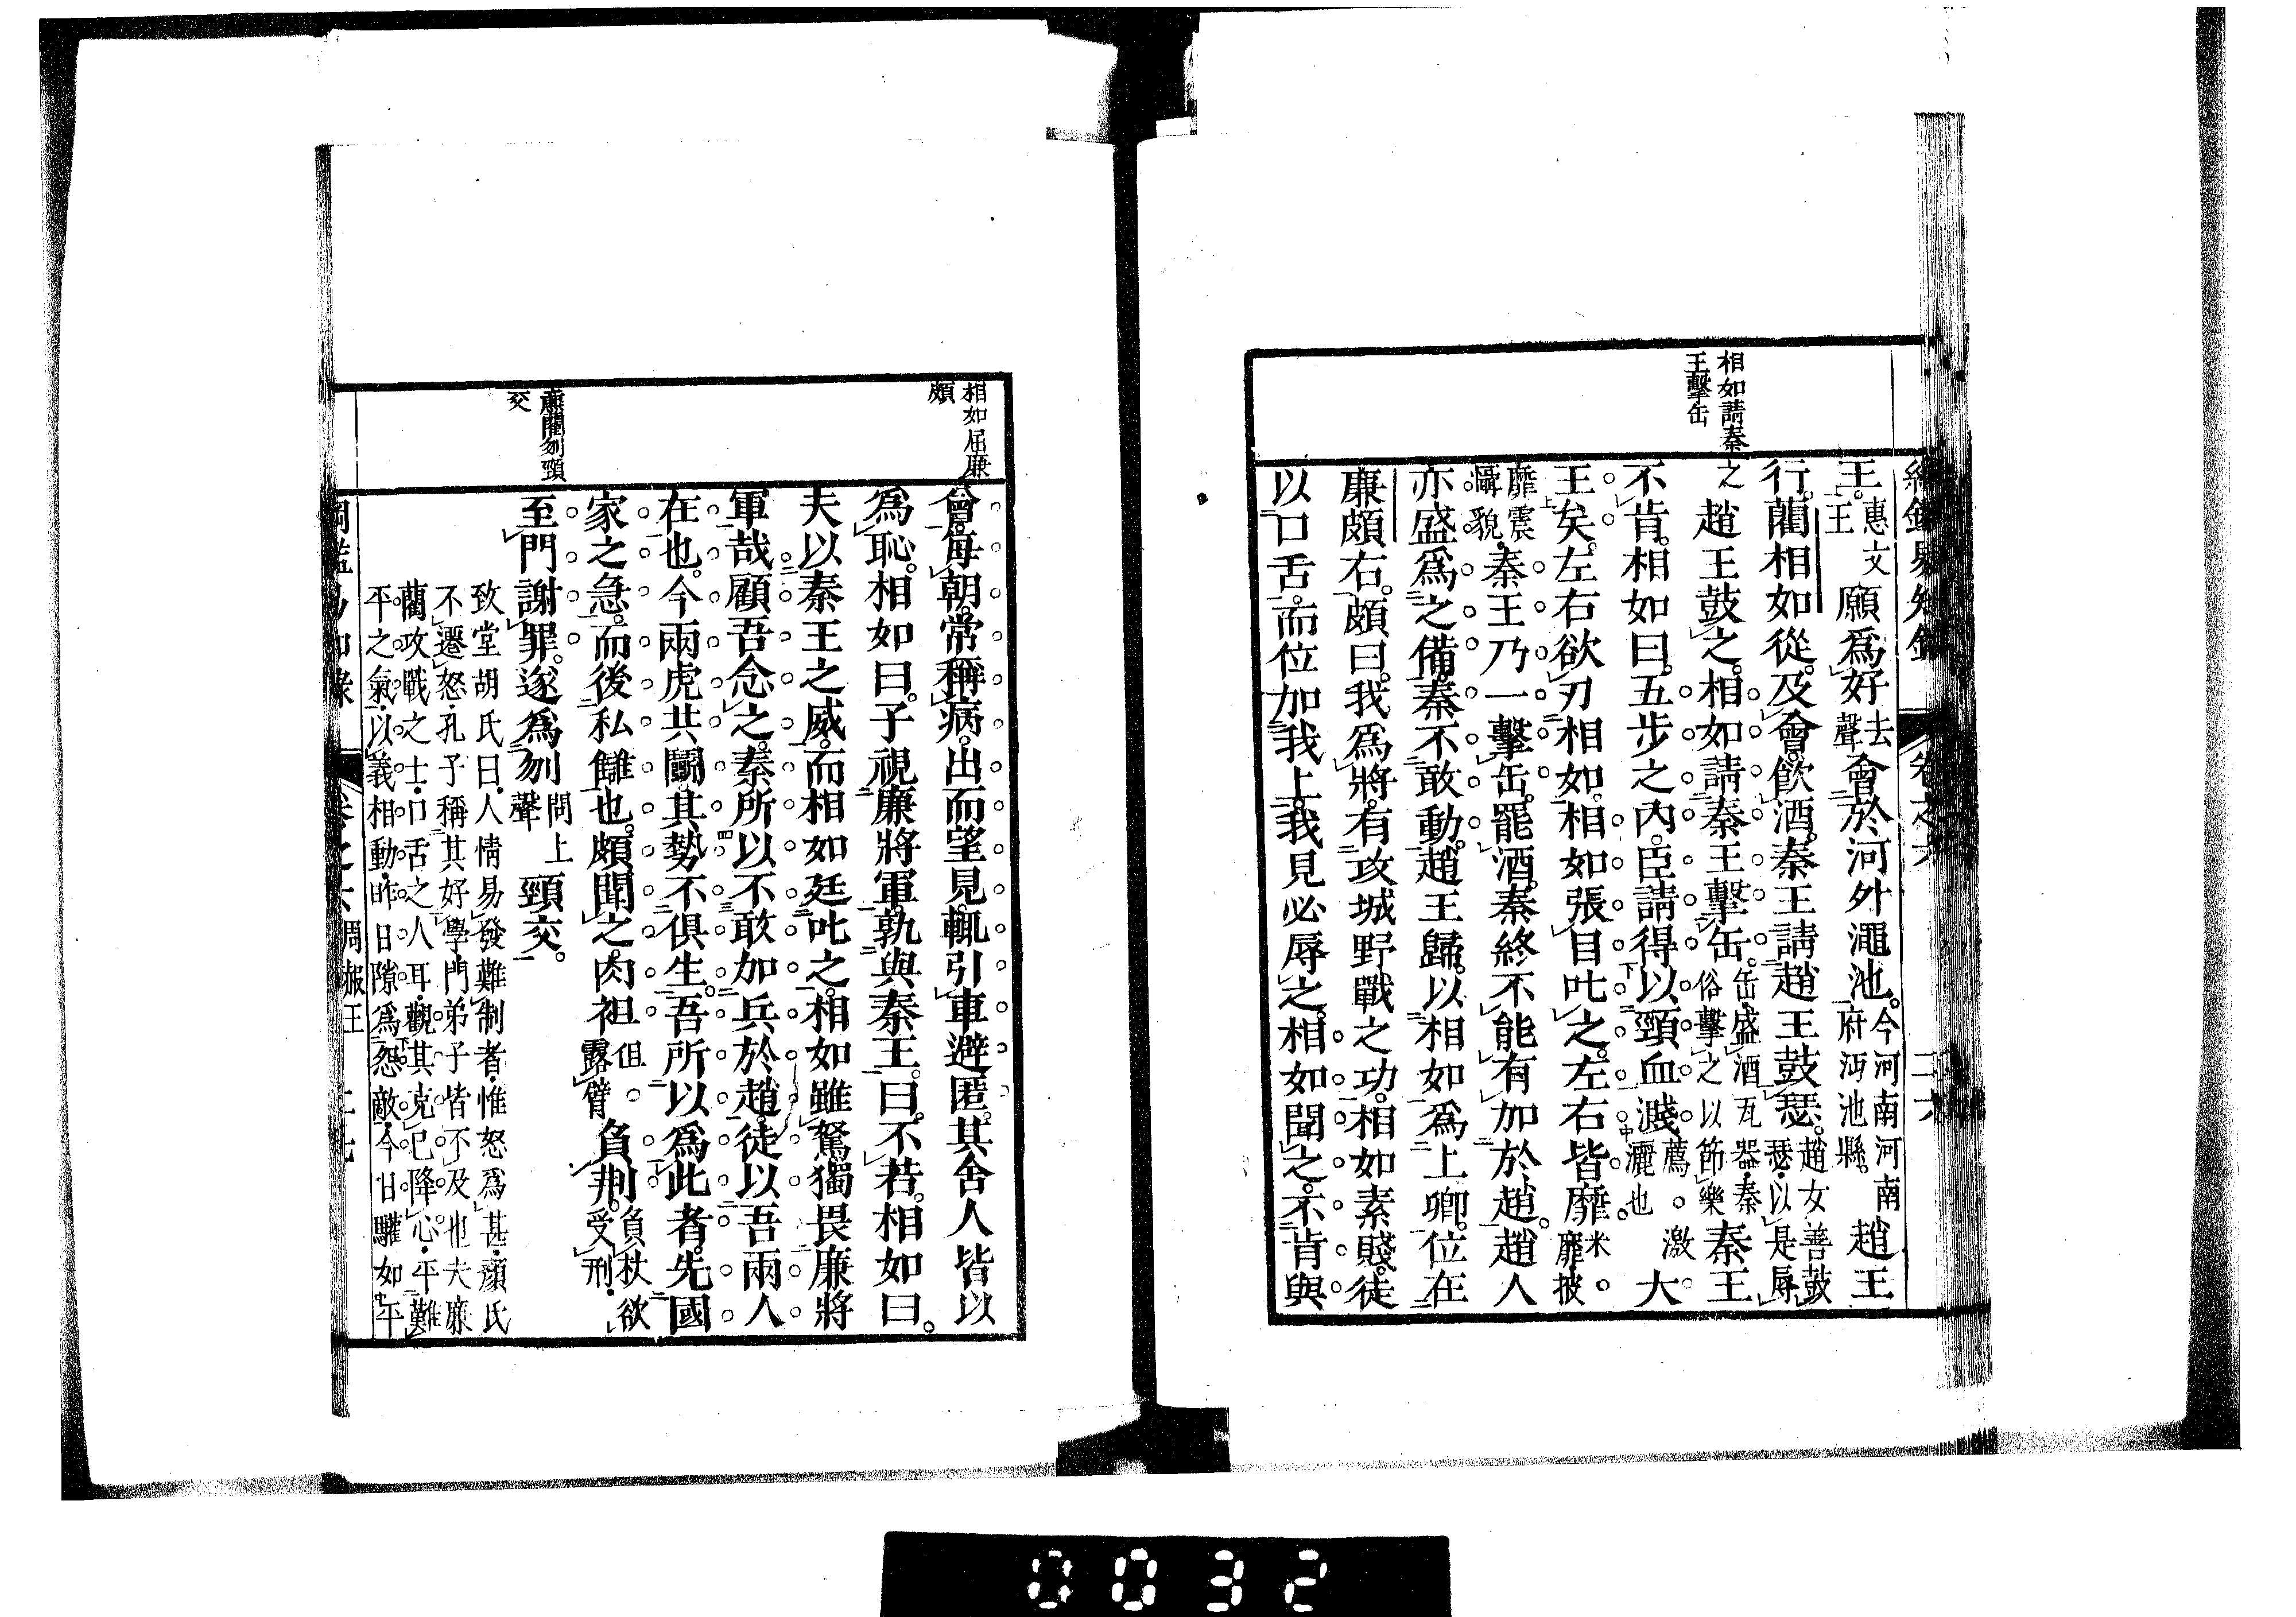 相如請秦
王擊缶
王。惠文王願爲好去聲會於河外澠池。今河南河南府沔池縣。趙王
行。藺相如從。及會。飲酒。秦王請趙王鼓瑟。趙女善鼓瑟、以是辱
之趙王鼓之。相如請秦王擊缶。缶、盛酒瓦器、秦俗擊之以節樂秦王
不肯。相如曰。五步之內。臣請得以頸血濺薦。激灑也大
王矣。左右欲刃相如。相如張目叱之。左右皆靡米。靡披
靡震懾貌。秦王乃一擊缶。罷酒。秦終不能有加於趙。趙人
亦盛爲之備。秦不敢動。趙王歸。以相如爲上卿。位在
廉頗右。頗曰。我爲將。有攻城野戰之功。相如素賤。徒
以口舌。而位加我上。我見必辱之。相如聞之。不肯與
相如屈廉
頗
會。每朝。常稱病。出而望見。輒引車避匿。其舍人皆以
爲恥。相如曰。子視廉將軍。孰與秦王。曰。不若。相如曰。
夫以秦王之威。而相如廷叱之。相如雖駑。獨畏廉將
軍哉。顧吾念之。秦所以不敢加兵於趙。徒以吾兩人
在也。今兩虎共鬭。其勢不俱生。吾所以爲此者。先國
家之急。而後私讎也。頗聞之。肉袒但。露臂負荆。負杖欲受刑、
廉藺刎頸
交
至門謝罪。遂爲刎問上聲頸交。
致堂胡氏曰、人情易發難制者、惟怒爲甚、顏氏
不遷怒、孔子稱其好學、門弟子皆不及也夫廉
藺攻戰之士、口舌之人耳、觀其克已降心、平難
平之氣、以義相動、昨日隙爲怨敵、今日驩如平
卷之六 周赧王